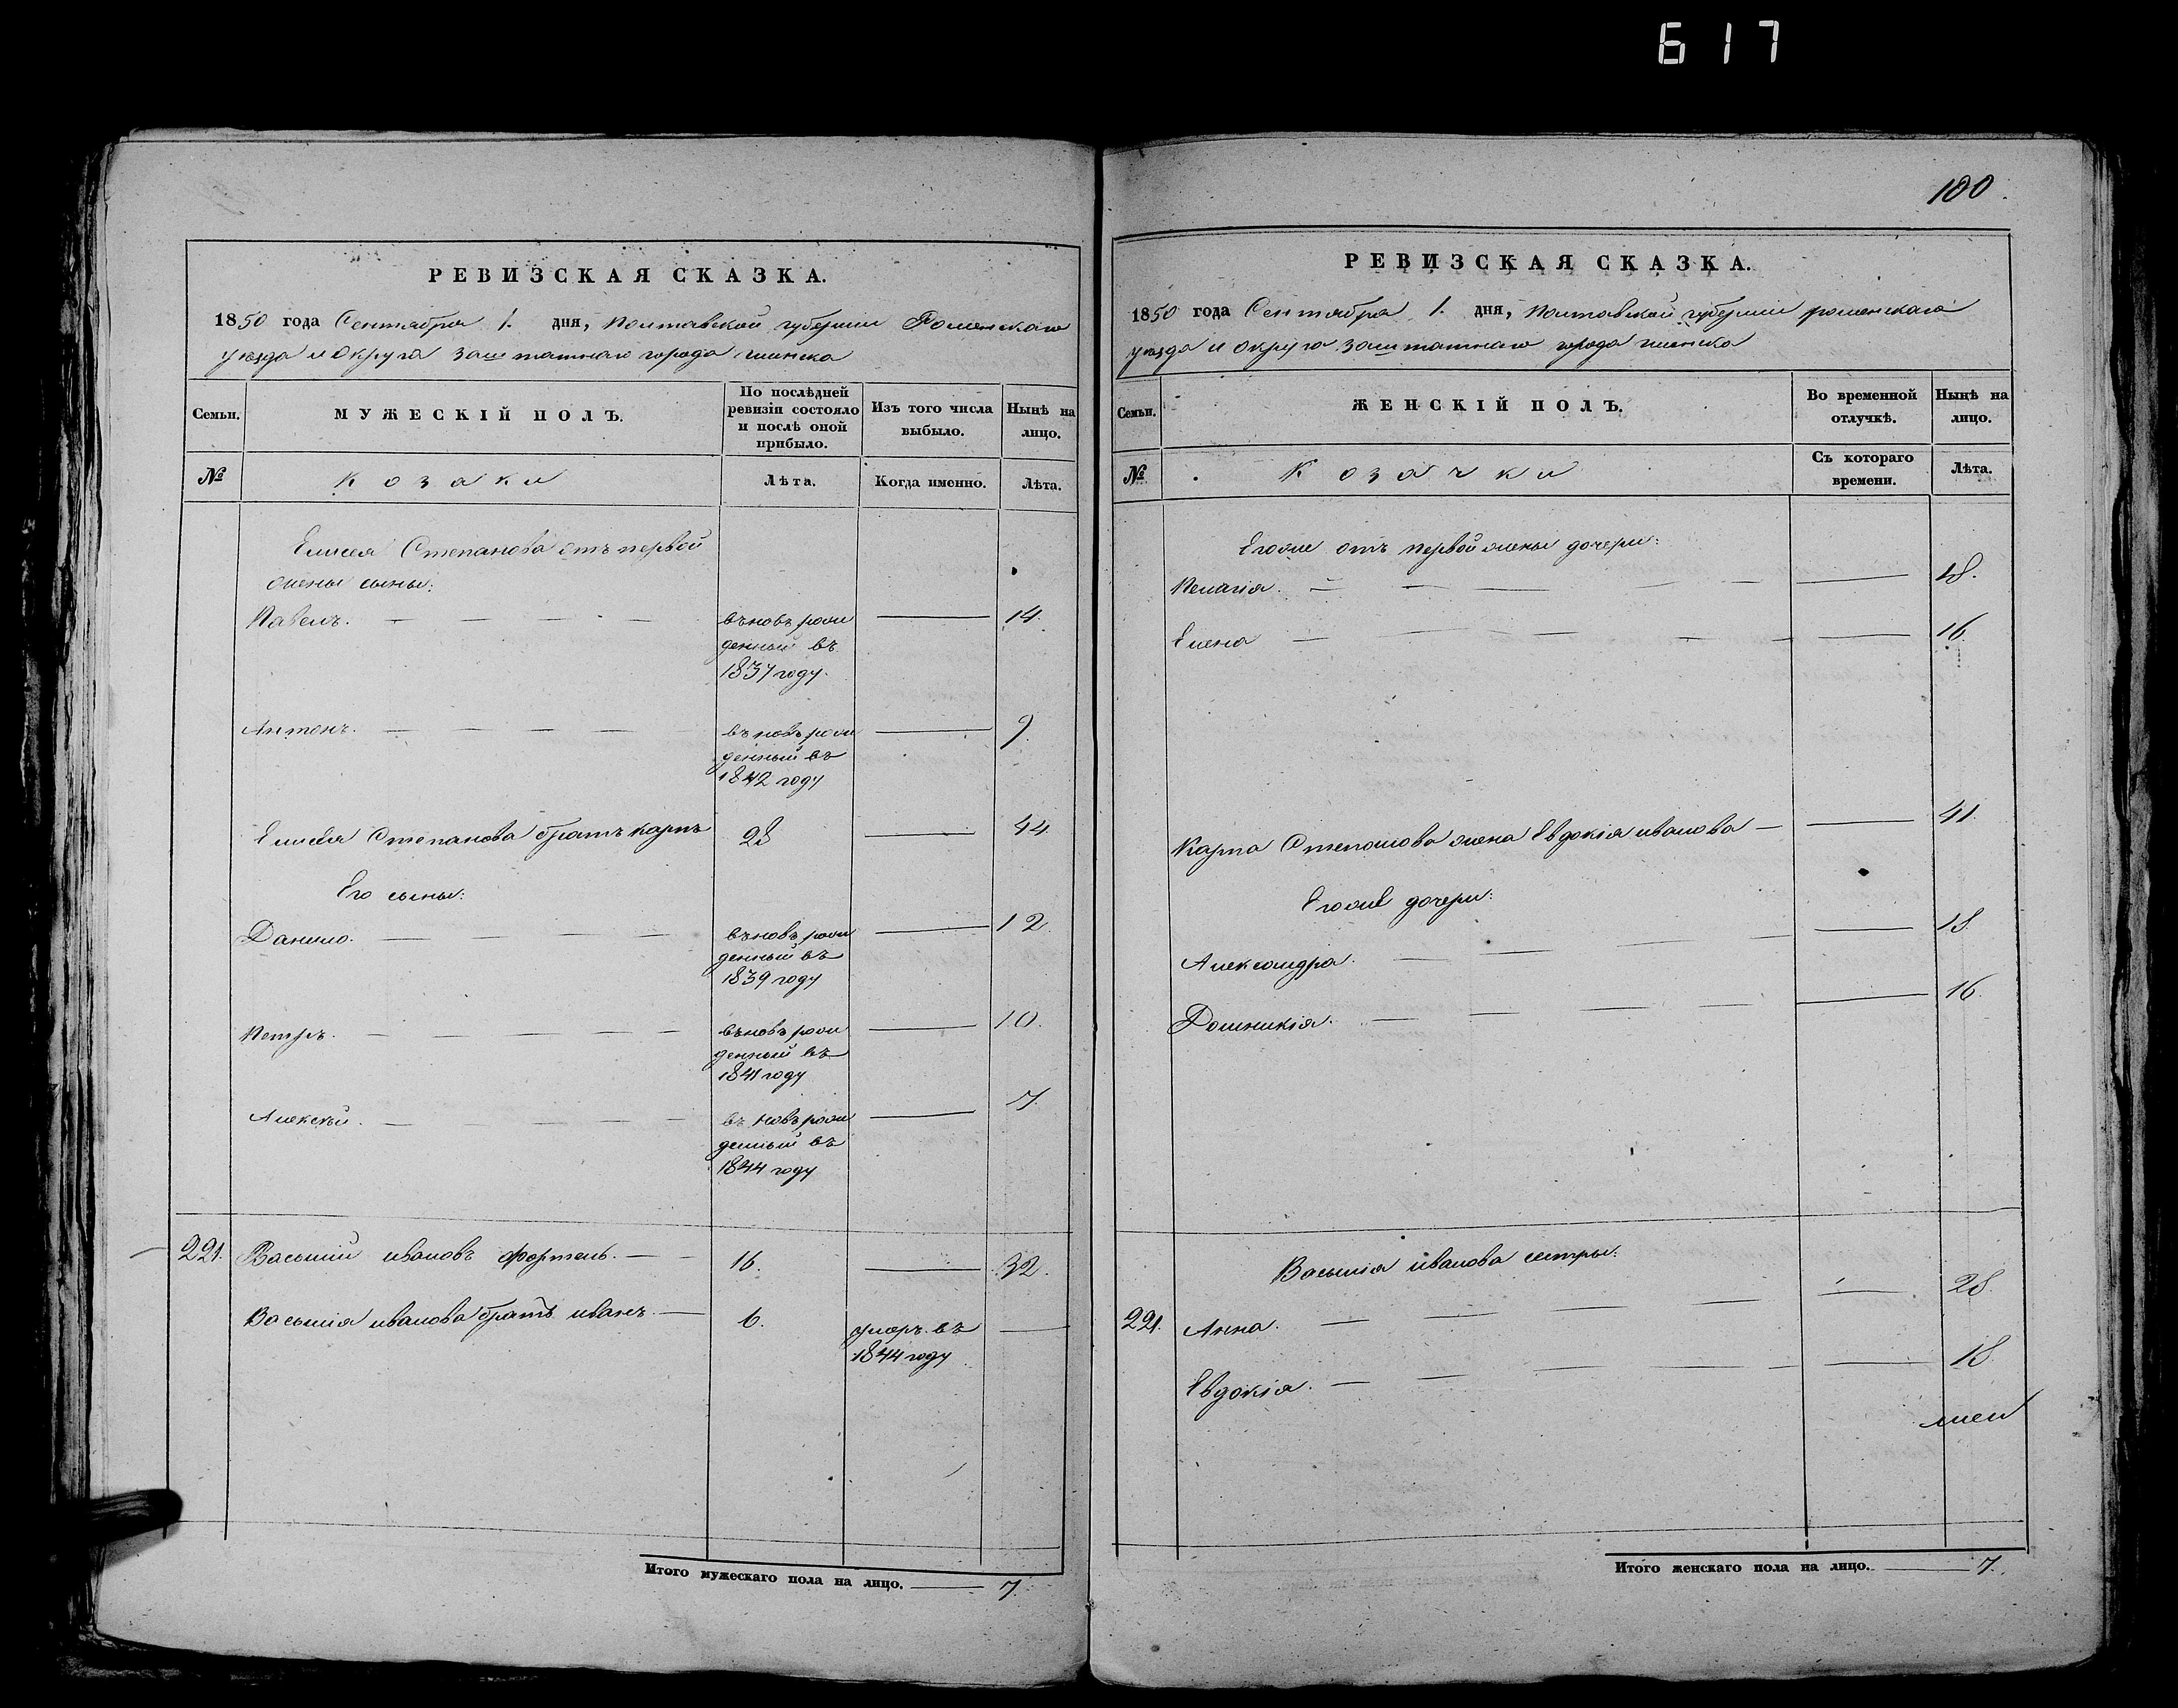 617
РЕВИЗСКАЯ СКАЗКА.
1850 года Сентября 1. дня, Полтавской губернии Роменскаго
уезда и округа заштатнаго города глинска
Семьи.
МУЖЕСКІЙ ПОЛЪ.
По послѣдней ревизіи состояло и послѣ оной прибыло.
Изъ того числа выбыло.
Нынѣ на лицо.
№
Козаки
Лѣта.
Когда именно.
Лѣта.
Елисея Степанова отъ первой
жены сыны:
Павелъ. 14.
въновь рож
денный въ
1837 году.
Антонъ. 9
въновь рож
денный въ
1842 году
Елисея Степанова братъ карпъ 28 44.
Его сыны:
Данило. 12
въновь рож
денный въ
1839 году
Петръ. 10.
въновь рож
денный въ
1841 году
Алексѣй. 7.
въновь рож
денный въ
1844 году
221. Василий ивановъ 16. 32.
Василия иванова братъ иванъ 6.
умеръ въ
1844 году
Итого мужескаго пола на лицо. 7.
100.
РЕВИЗСКАЯ СКАЗКА.
1850 года Сентября 1. дня, Полтавской губернии роменскаго
уезда и округа заштатнаго города глинска
Семьи.
ЖЕНСКІЙ ПОЛЪ.
Во временной отлучкѣ.
Нынѣ на лицо.
№
Козачки
Съ котораго времени.
Лѣта.
Егоже отъ первой жены дочери:
Пелагія. 18.
Елена 16.
Карпа Степанова жена Евдокія иванова 41.
Егоже дочери:
Александра. 18.
Домникія. 16.
Василія иванова сестры:
221. Анна. 28.
Евдокія. 18.
Итого женскаго пола на лицо. 7.